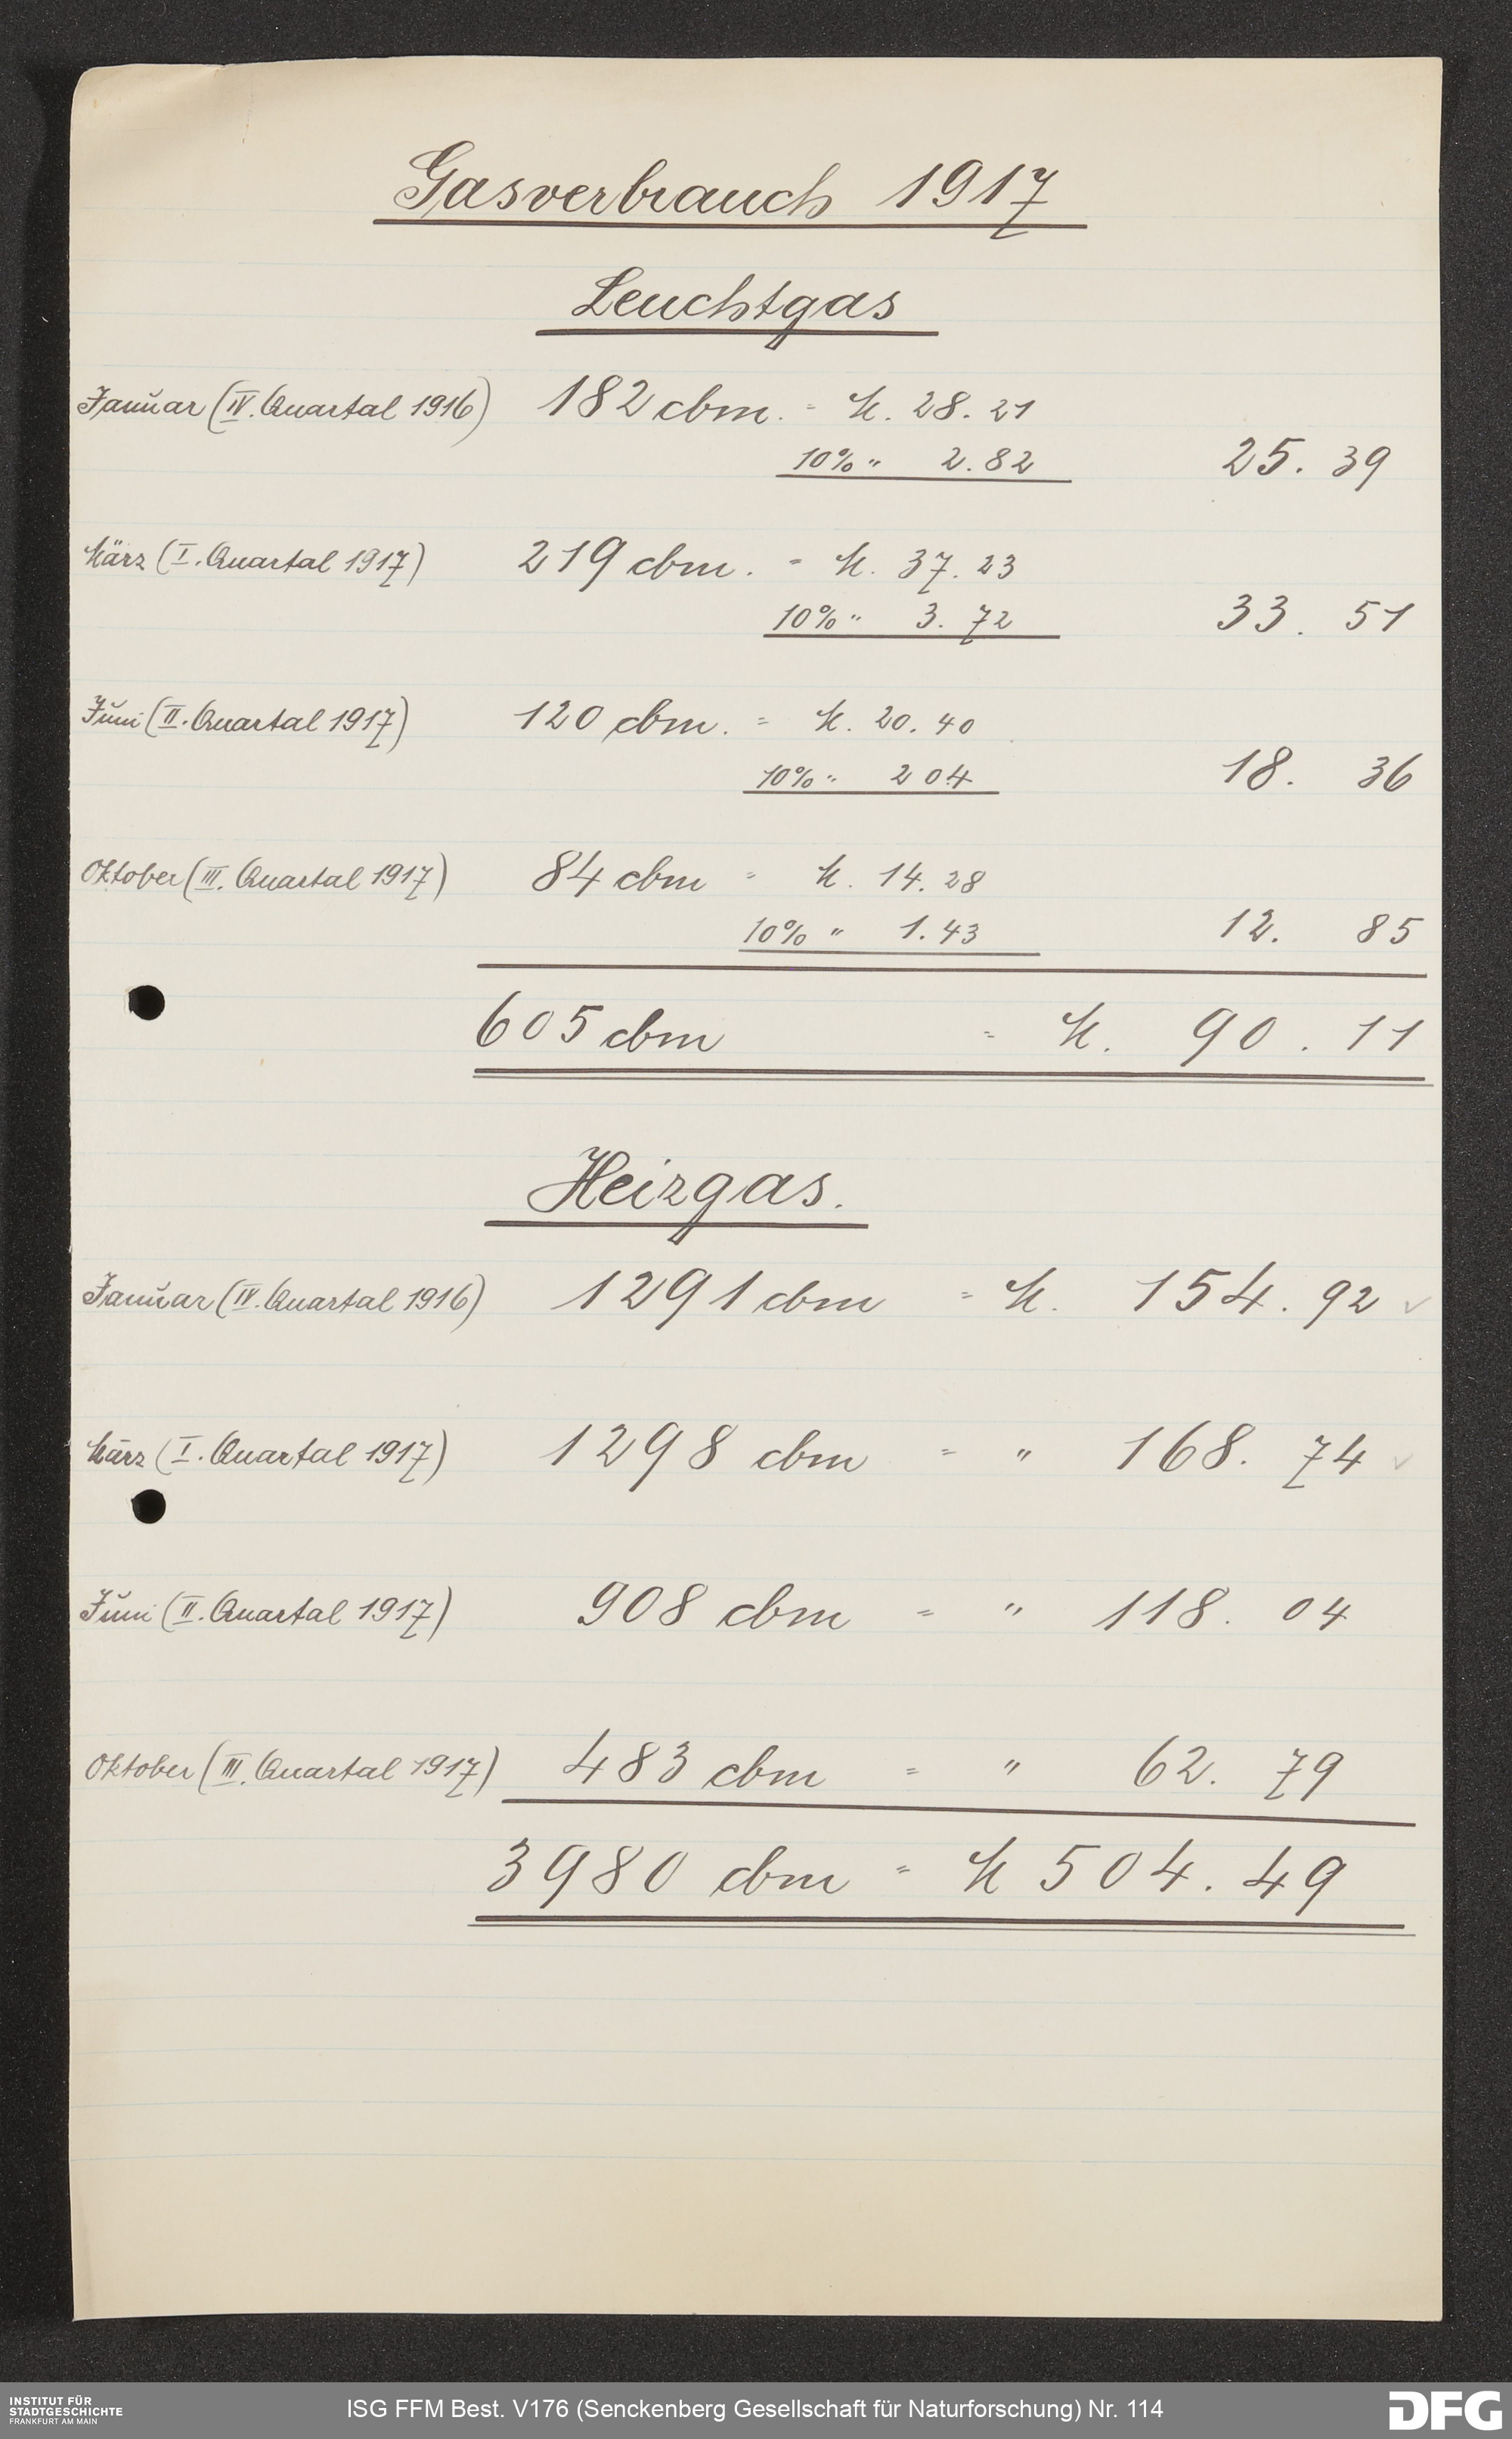 Gasverbrauch 1917
Leuchtgas
Januar (IV. Quartal 1916) 182 cbm. = M. 28. 21
10% " 2.82 25. 39
März (I. Quartal 1917) 219 cbm. = M. 37. 23
10% " 3. 72 33. 51
Juni (II. Quartal 1917) 120 cbm. = M. 20. 40
10% " 2 04 18. 36
Oktober (III. Quartal 1917) 84 cbm = M. 14. 28
10% " 1. 43 12. 85
605 cbm = M. 90. 11
Heizgas.
Januar (IV. Quartal 1916) 1291 cbm = M. 154. 92 ✓
März (I. Quartal 1917) 1298 cbm = " 168. 74 ✓
Juni (II. Quartal 1917) 908 cbm = " 118. 04
Oktober (III. Quartal 1917) 483 cbm = " 62. 79
3980 cbm = M 504. 49
INSTITUT FÜR
STADTGESCHICHTE
FRANKFURT AM MAIN
ISG FFM Best. V176 (Senckenberg Gesellschaft für Naturforschung) Nr. 114
DFG